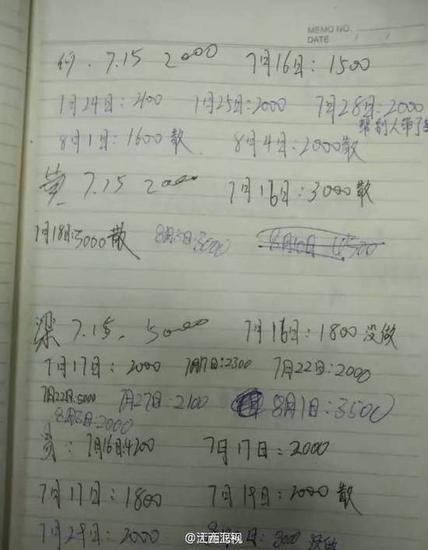 MEMO NO.
DATE
7.15 2000 7月16日:1500
7月24日:2100 7月25日:2000 7月28日:2000
帮别人带了
8月1日:1600散 8月4日:2000散
黄 7.15 2000 7月16日:3000散
7月18日5000散 8月5日:3000 8月10日 4500
梁 7.15. 5000 7月16日:1800 没做
7月17日:2000 7月17日:2300 7月22日:2000
7月22日:5000 7月27日:2100 8月1日:3500
8月3日:2000
7月16日:4200 7月17日:2000
7月17日:1800 7月19日:2000 散
7月29日:2000 3000
@江西卫视